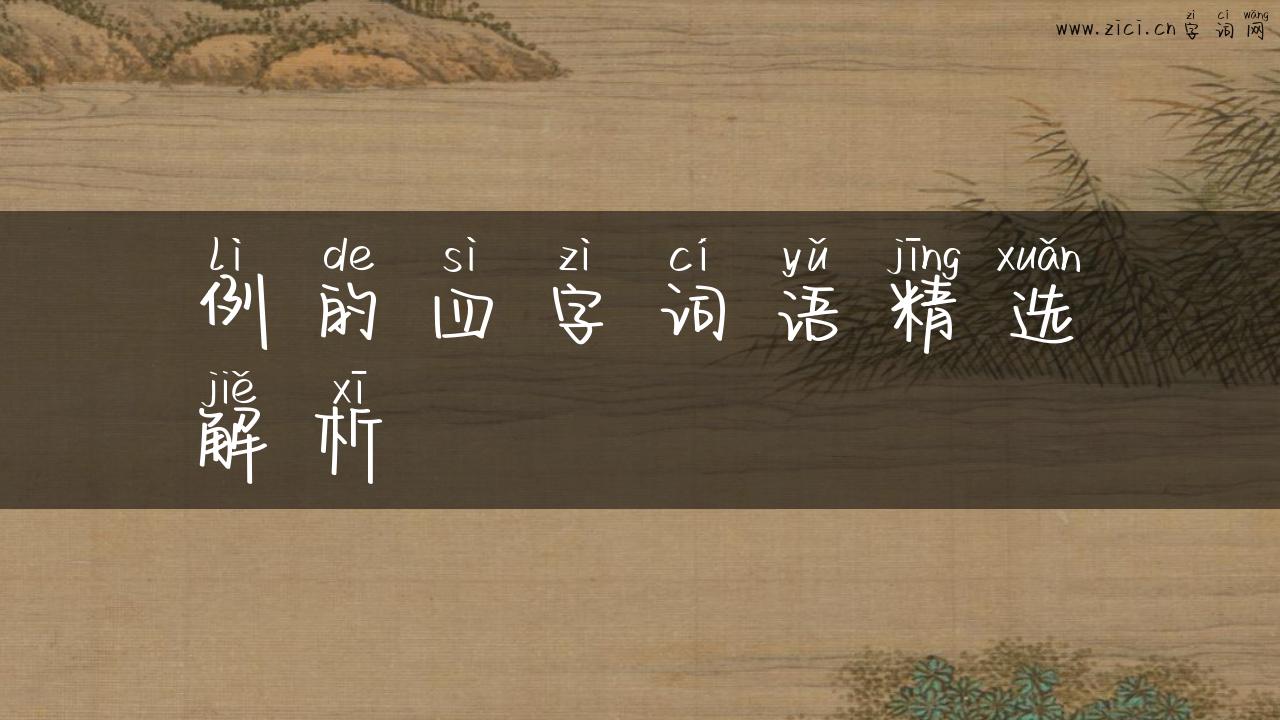 www.zici.cn 字词网
zì cí wǎng
lì de sì zì cí yǔ jīng xuǎn
例的四字词语精选
jiě xī
解析